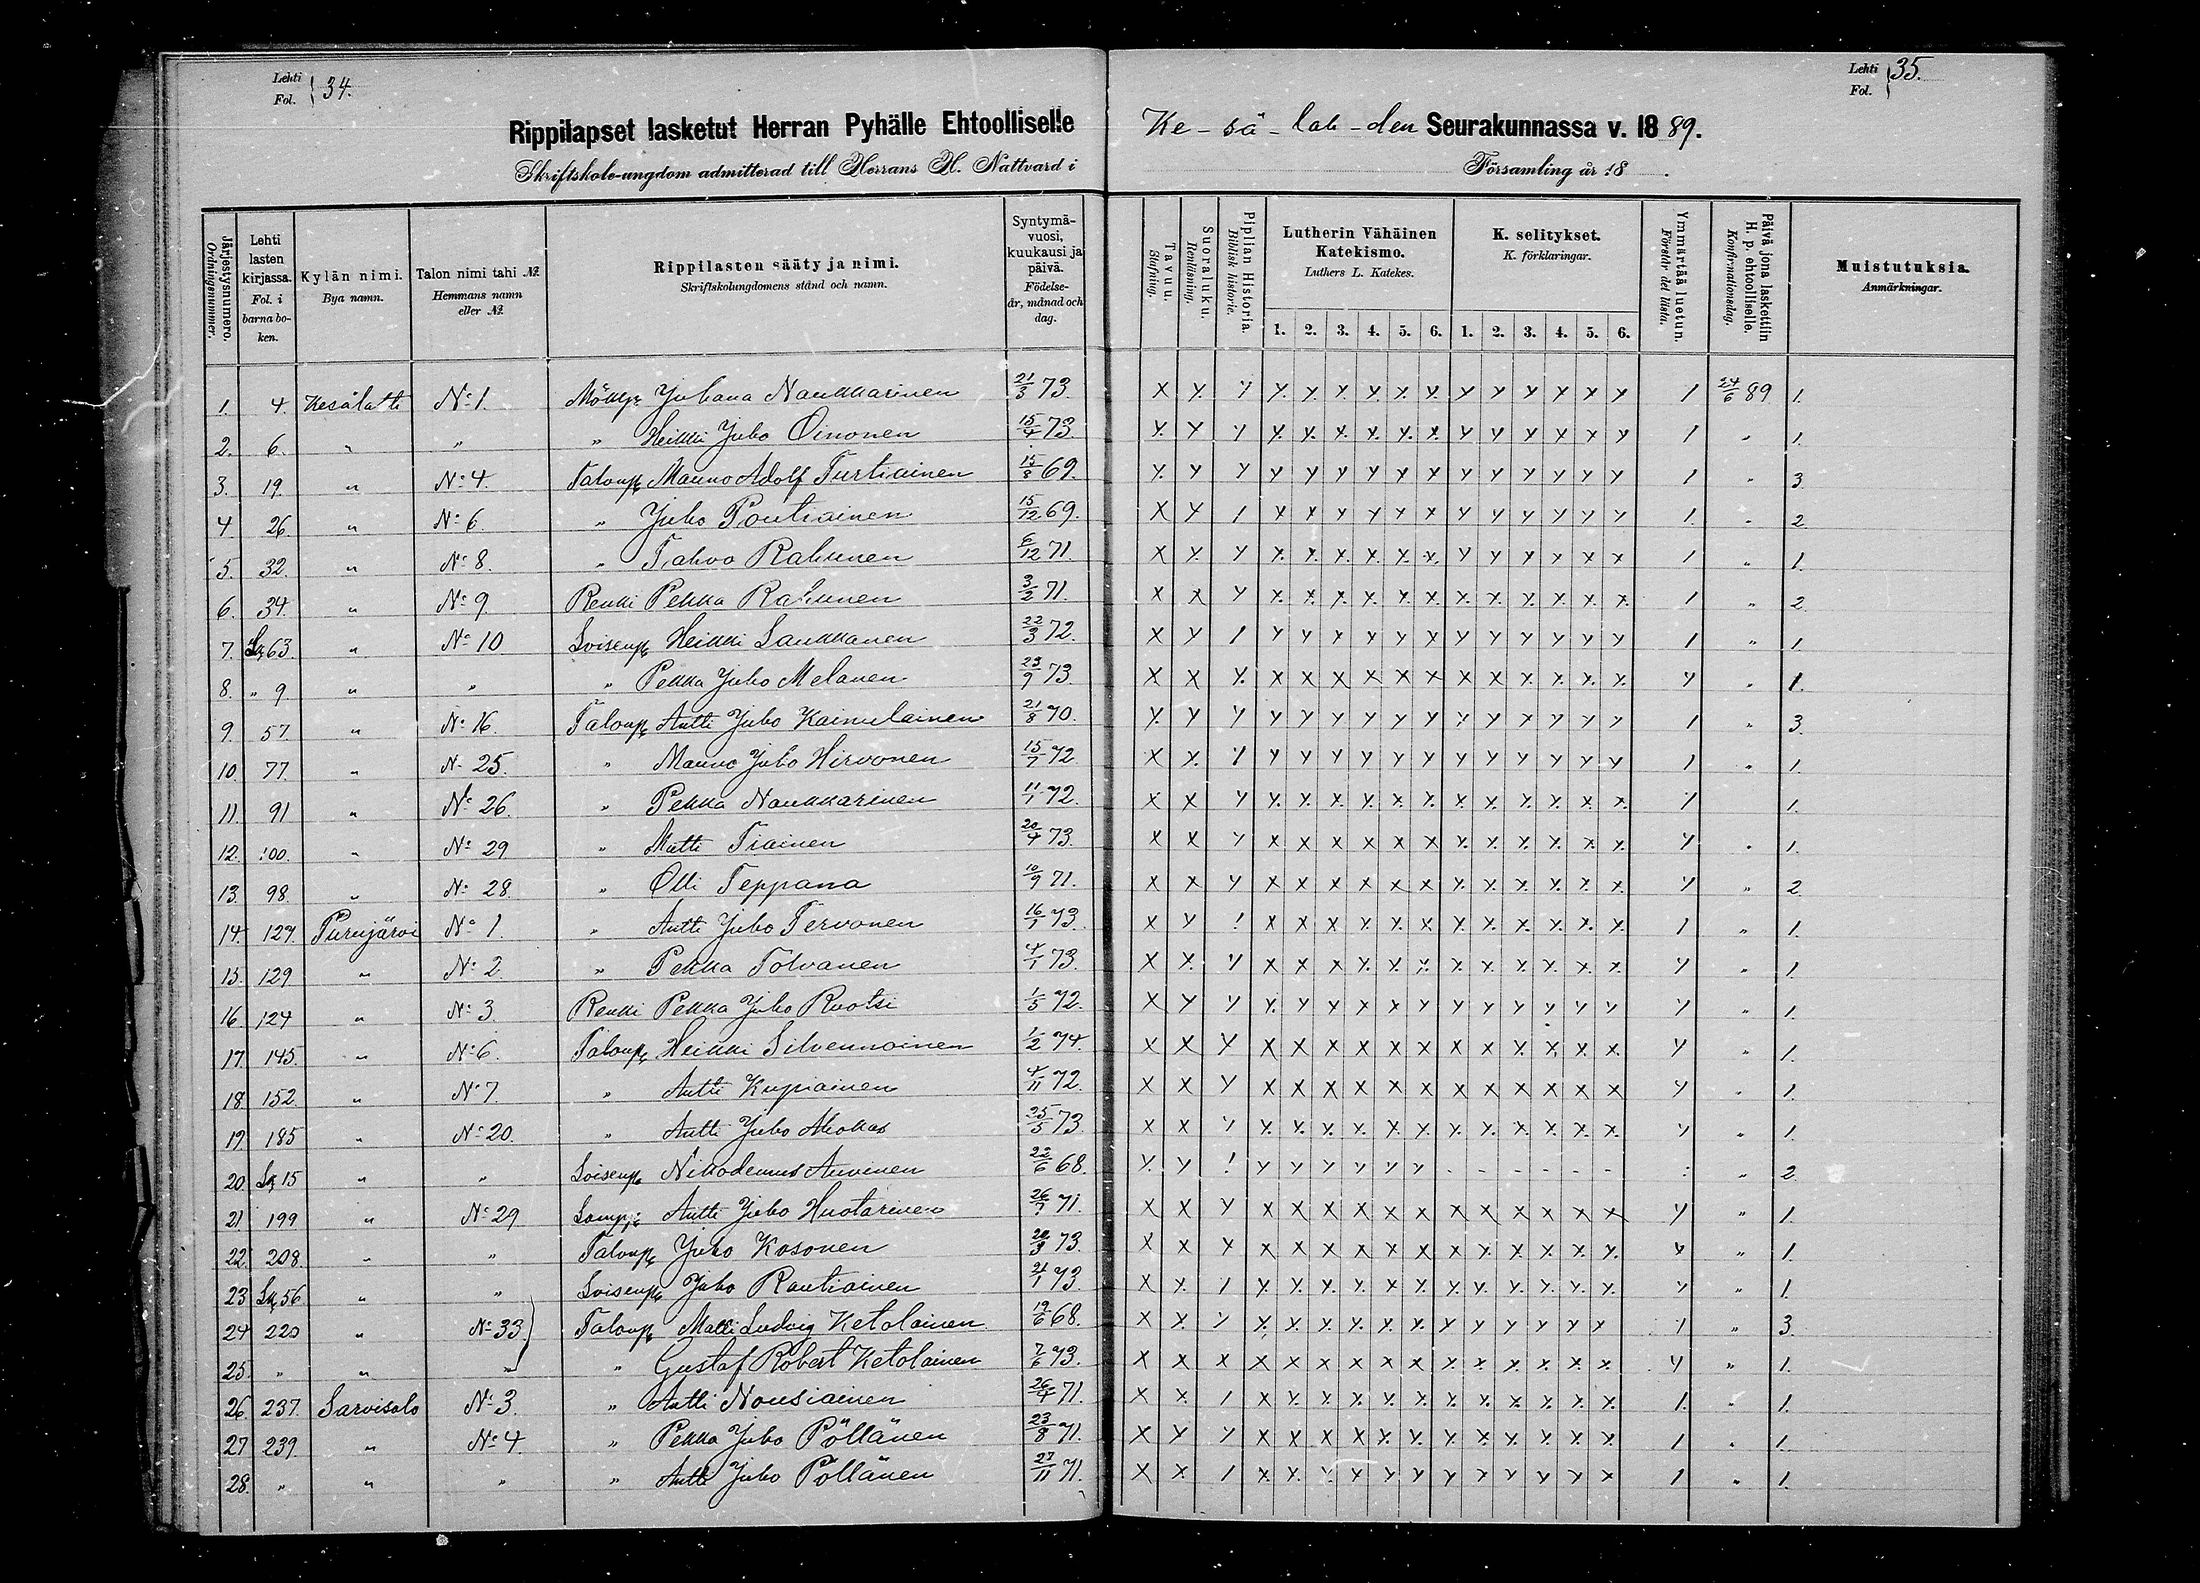 Lehti Fol. 34.
Lehti Fol. 35.
Rippilapset lasketut Herran Pyhälle Ehtoolliselle Ke-sä-lah-den Seurakunnassa v. 1889.
Skriftskole-ungdom admitterad till Herrans H. Nattvard i Församling år 18 .
Järjestysnumero. Ordningsnummer.
Lehti lasten kirjassa. Fol. i barna boken.
Kylän nimi. Bya namn.
Talon nimi tahi №. Hemmans namn eller №.
Rippilasten sääty ja nimi. Skriftskolungdomens stånd och namn.
Syntymävuosi, kuukausi ja päivä. Födelse-år, månad och dag.
Tavuu. Stafning.
Suoraluku. Renläsning.
Piplian Historia. Biblisk historie.
Lutherin Vähäinen Katekismo. Luthers L. Katekes.
1. 2. 3. 4. 5. 6.
K. selitykset. K. förklaringar.
1. 2. 3. 4. 5. 6.
Ymmärtää luetun. Förstår det lästa.
Päivä jona laskettiin H. p. ehtoolliselle. Konfirmationsdag.
Muistutuksia. Anmärkningar.
1. 4. Kesälahti No 1 Juhana Naukkarinen 21/3 73. 24/6 89 1.
2. 6. " " " Heikki Juho Oinonen 15/4 73. " 1.
3. 19. " No 4. Taloup. Mauno Adolf Turtiainen 15/8 69. " 3.
4 26. " No 6 " Juho Poutiainen 15/12 69. " 2.
5. 32. " No 8. " Tahvo Rahunen 6/12 71. " 1.
6. 34. " No 9. Renki Pekka Rahunen 3/2 71. " 2.
7. Lq 63. " No 10 Loisenp. Heikki Laukkanen 22/3 72. " 1.
8. " 9 " " " Pekka Juho Melanen 23/9 73. " 1.
9. 57. " No 16. Taloup. Antti Juho Kainulainen 21/8 70. " 3.
10. 77. " N. 25. " Mauno Juho Hirvonen 15/7 72 " 1.
11. 91 " No 26. " Pekka Naukkarinen 11/1 72. 1.
12. 100. " No 29. " Matti Tiainen 20/4 73. " 1.
13. 98. " No 28. " Olli Teppana 10/9 71. " 2.
14. 127. Purujärvi No 1. " Antti Juho Tervonen 16/1 73. " 1.
15. 129 " No 2. " Pekka Tolvanen 4/1 73. " 1.
16. 124 " No 3 Renki Pekka Juho Ruotsi 1/5 72. " 1.
17. 145. " No 6. Taloup. Heikki Silvennoinen 1/2 74. " 1.
18. 152. " No 7. " Antti Kupiainen 4/11 72. " 1.
19. 185 " No 20. " Antti Juho 25/5 73. " 1.
20. Lq 15 " " Loisenp. Nikodemus Auvinen 22/6 68. " 2.
21. 199 " No 29 Antti Juho Huotarinen 26/7 71. " 1.
22. 208. " " Taloup. Juho Kosonen 20/3 73. " 1.
23 Lq 56 " " Loisenp. Juho Rautiainen 21/1 73. " 1.
24 220 " No 33 Taloup. Matti Ludvig Ketolainen 19/6 68. " 3.
25. " " " " Gustaf Robert Ketolainen 7/6 73. " 1.
26. 237. Sarvisalo No 3. " Antti Nousiainen 26/4 71. " 1.
27. 239. " No 4. " Pekka Juho Pöllänen 23/8 71. " 1.
28. " " " " Antti Juho Pöllänen 27/11 71. " 1.